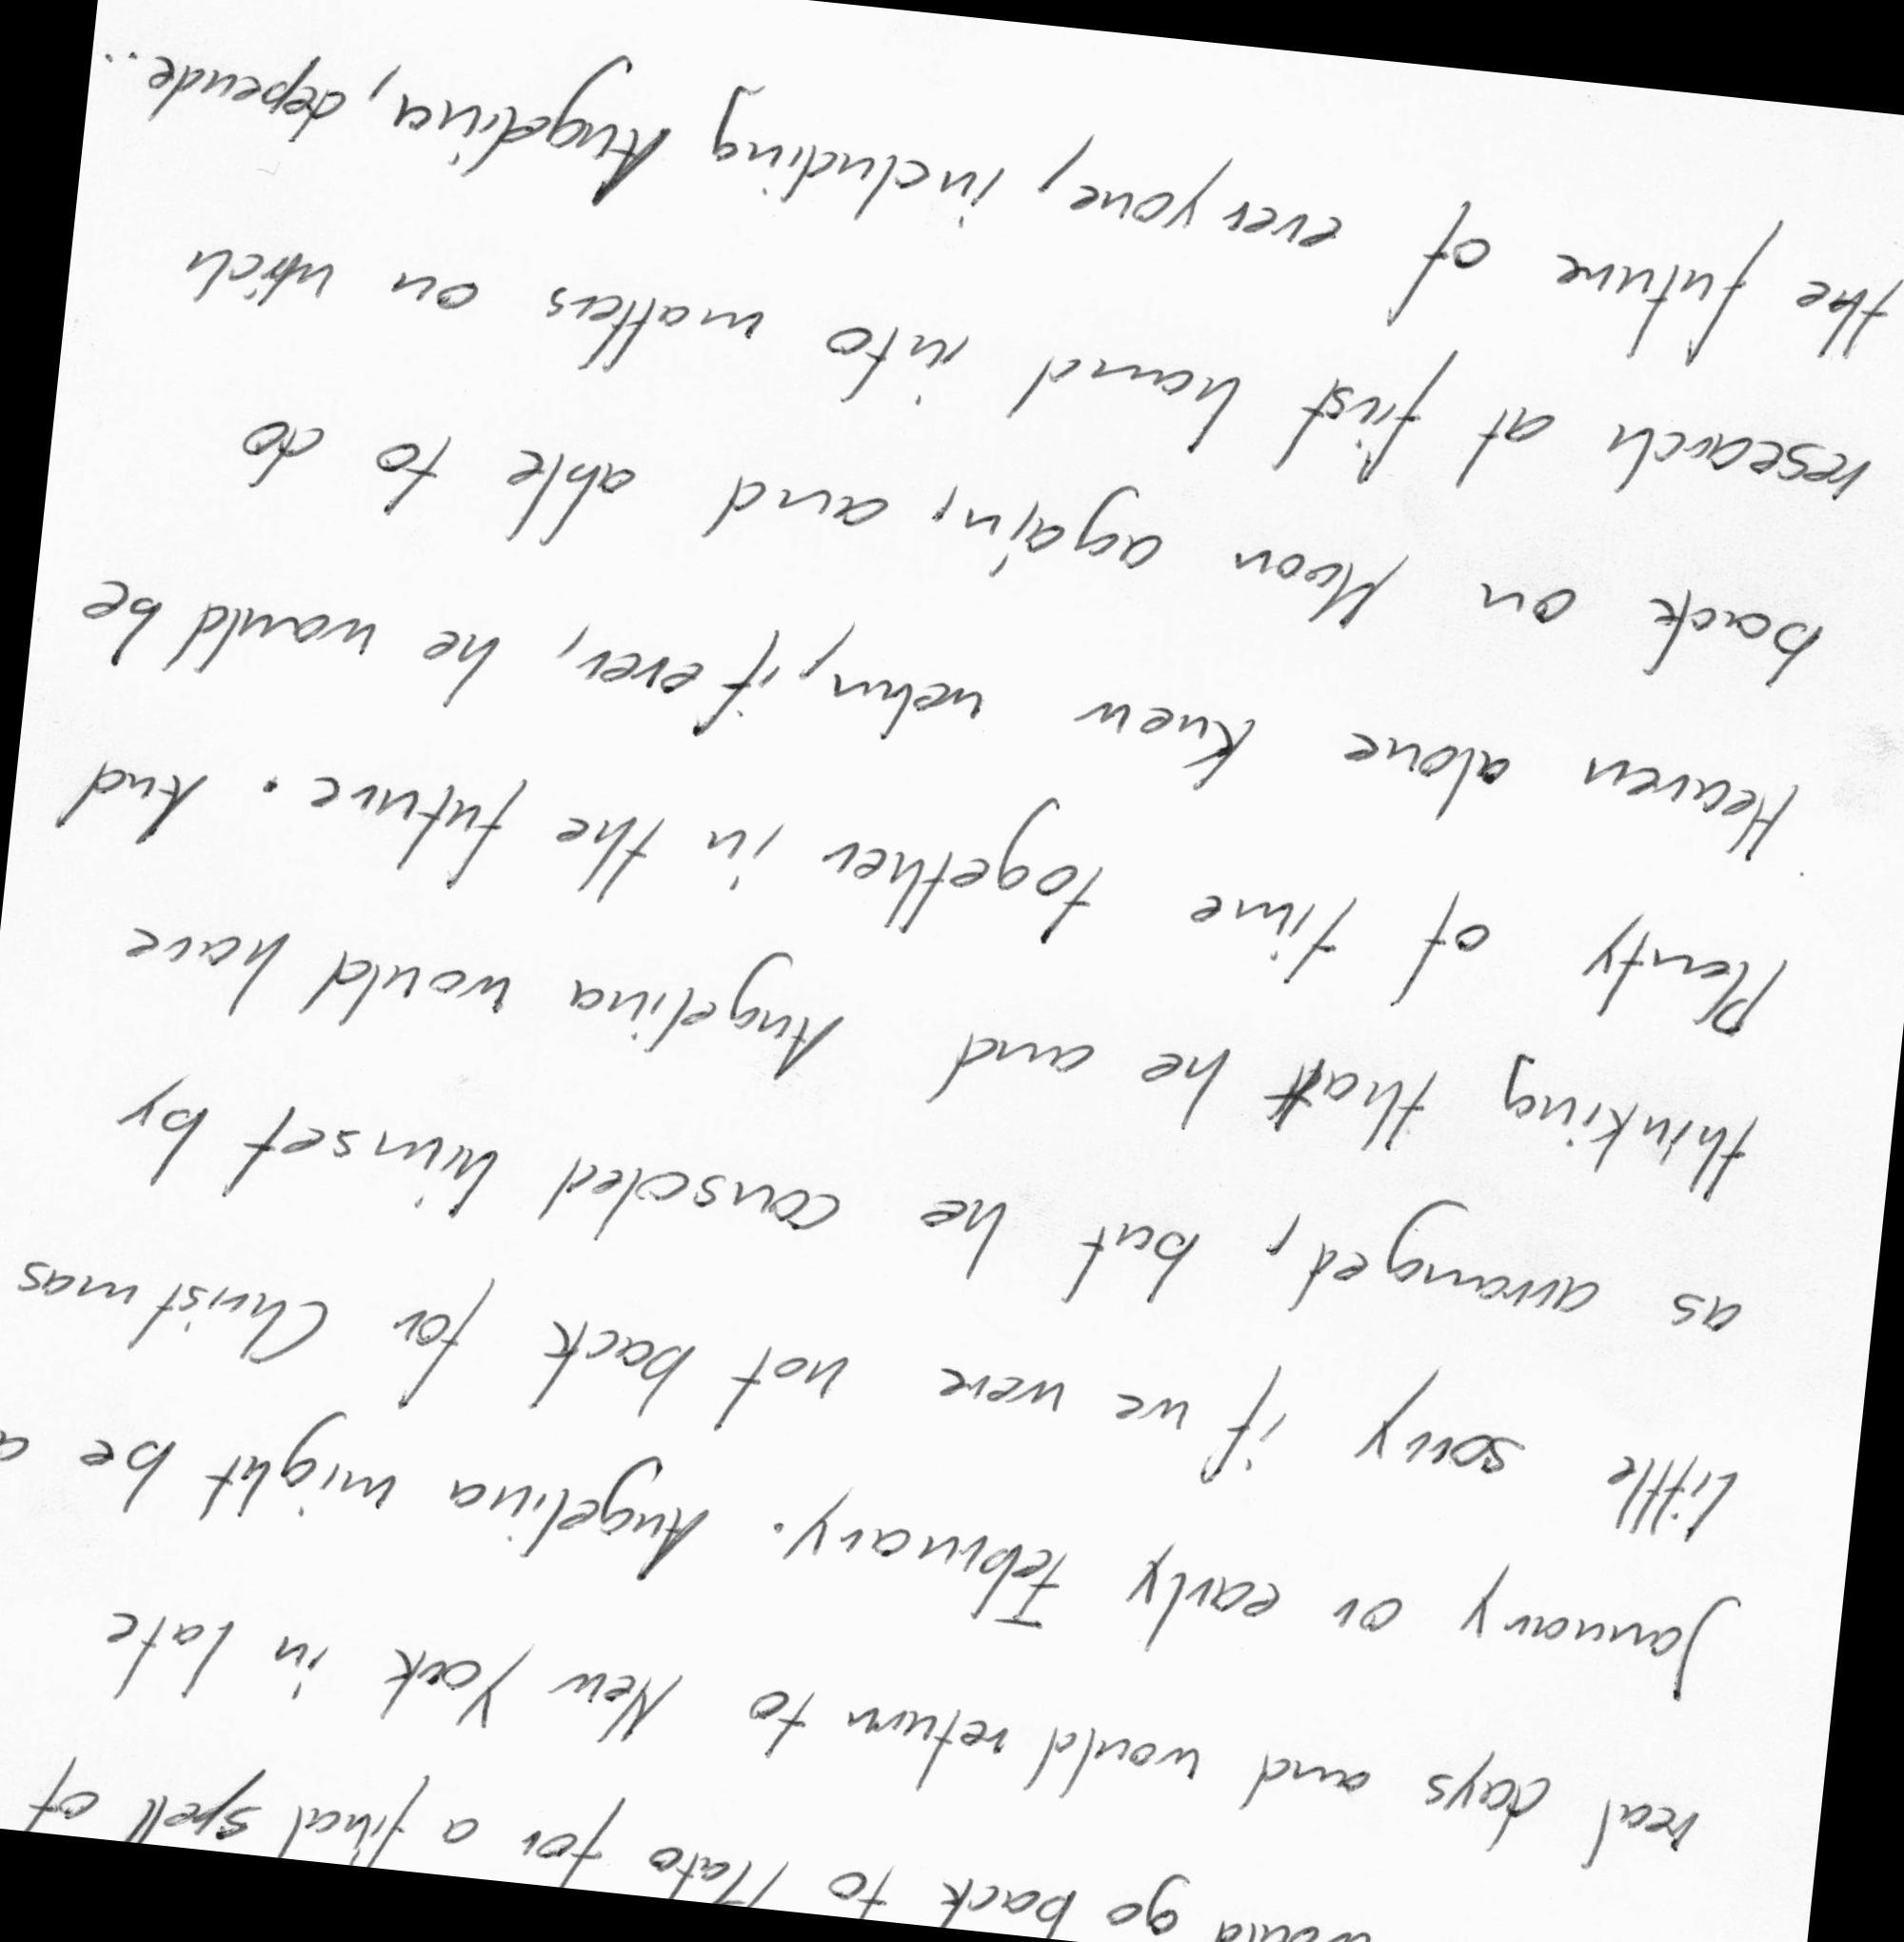 would go back to Plato for a final spell of
real days and would return to New York in late
January or early February. Angelina might be a
little sorry if we were not back for Christmas
as arranged, but he consoled himsef by
thinking that he and Angelina would have
Plenty of time together in the future. And
Heaven alone knew wehn, if ever, he would be
back on Moon again, and able to do
research at first hand into matters on which
the future of everyone, including Angelina, depende...